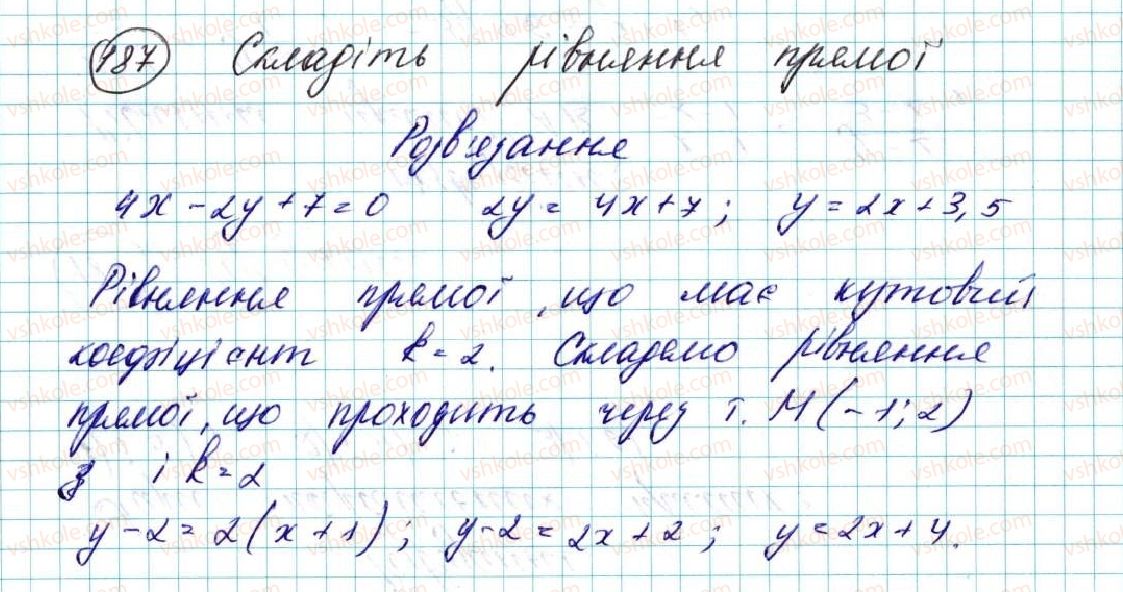 487 Складіть рівняння прямої
Розв'язання
4x - 2y + 7 = 0 2y = 4x + 7; y = 2x + 3,5
Рівняння прямої, що має кутовий
коефіцієнт k = 2. Складемо рівняння
прямої, що проходить через т. M(-1; 2)
з і k = 2
y - 2 = 2(x + 1); y - 2 = 2x + 2; y = 2x + 4.